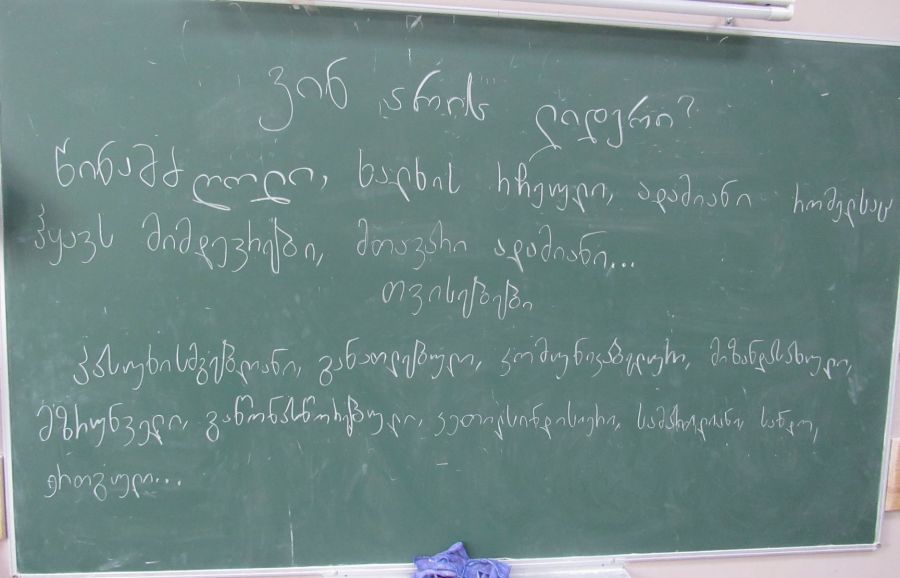 ვინ არის ლიდერი?
წინამძღოლი, ხალხის რჩეული, ადამიანი რომელსაც
ჰყავს მიმდევრები, მთავარი ადამიანი...
თვისებები
პასუხისმგებლიანი, განათლებული, კომუნიკაბელური, მიზანდასახული,
მზრუნველი, გაწონასწორებული, კეთილსინდისიერი, სამართლიანი, სანდო,
ერთგული...